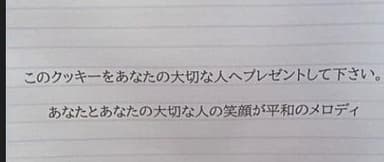 このクッキーをあなたの大切な人へプレゼントして下さい。
あなたとあなたの大切な人の笑顔が平和のメロディ